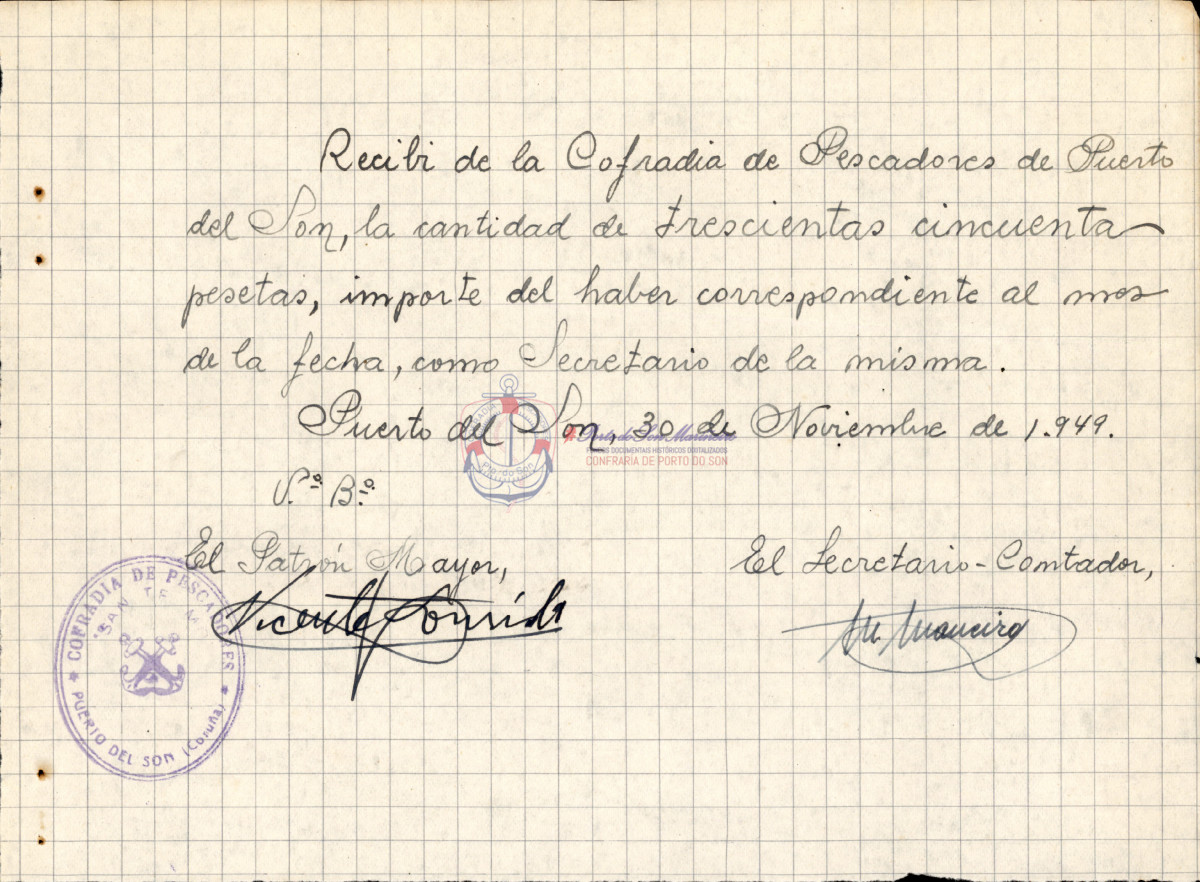 Recibi de la Cofradia de Pescadores de Puerto
del Son, la cantidad de trescientas cincuenta
pesetas, importe del haber correspondiente al mes
de la fecha, como Secretario de la misma.
Puerto del Son, 30 de Noviembre de 1.949.
V.º B.º
El Patrón Mayor,
El Secretario-Contador,
Vicente
COFRADIA DE PESCADORES
"SAN
PUERTO DEL SON (Coruña)
Pto. do Son
Porto do Son Mariñeiro
FONDOS DOCUMENTAIS HISTÓRICOS DIXITALIZADOS
CONFRARÍA DE PORTO DO SON